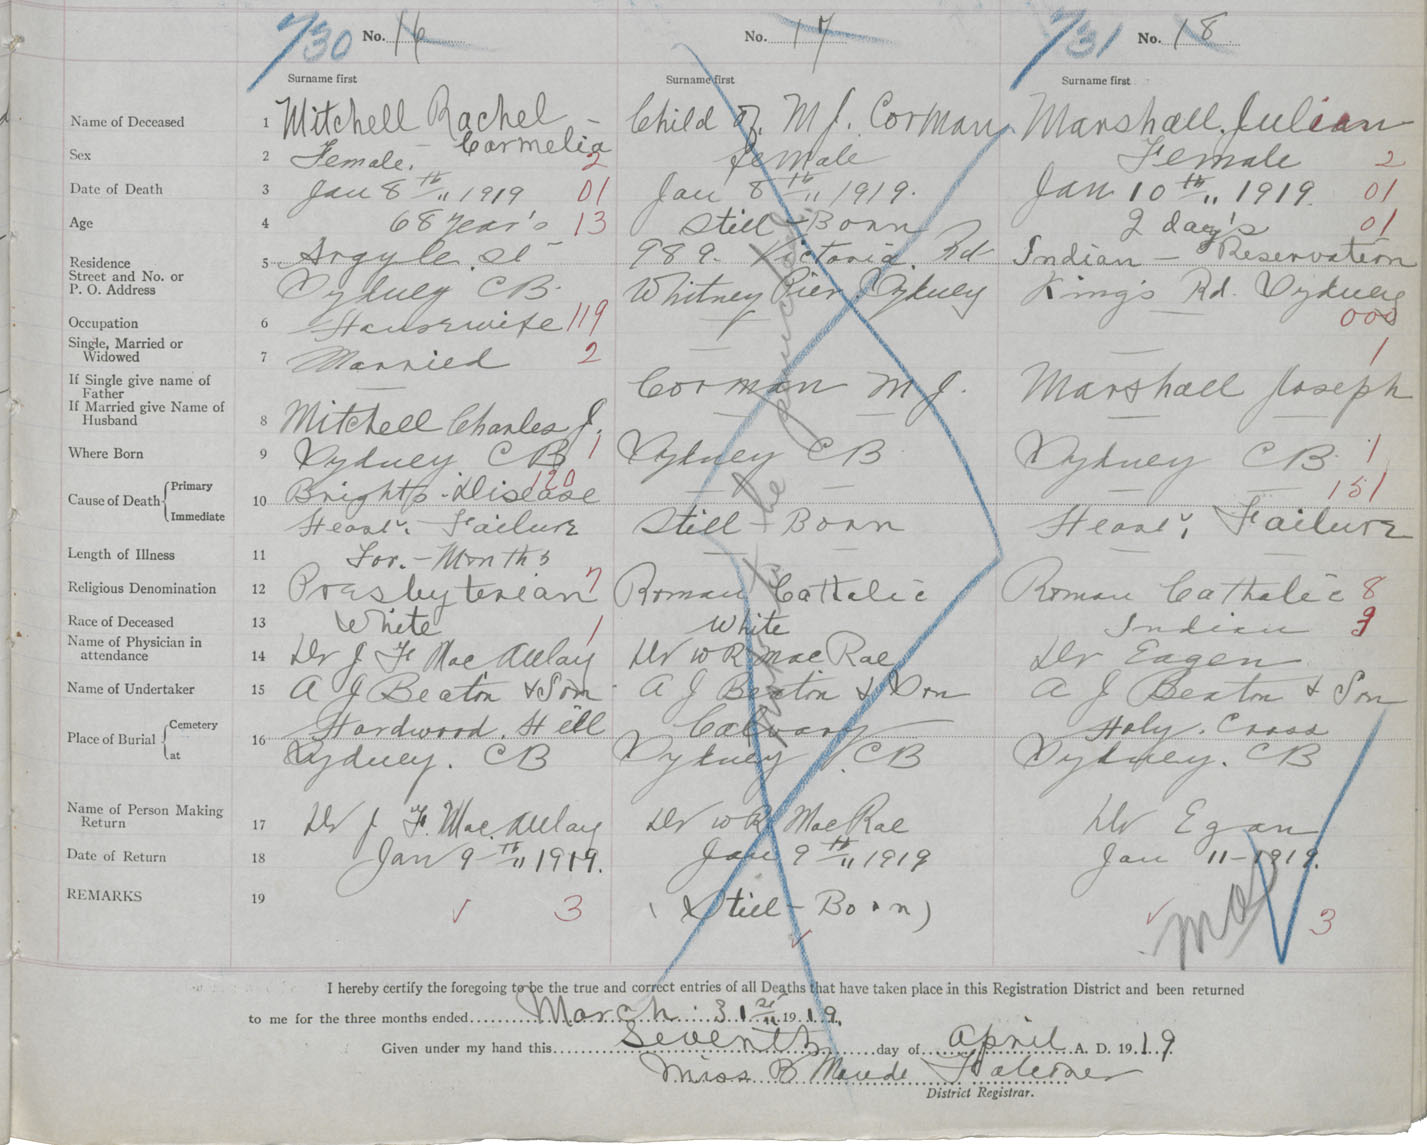 730 No. 16 No. 17 731 No. 18
Surname first Surname first Surname first
Name of Deceased 1 Mitchell Rachel - Child of M J. Corman Marshall Julian
Carmelia
Sex 2 Female. 2 female Female 2
Date of Death 3 Jan 8th " 1919 01 Jan 8th " 1919. Jan 10th " 1919. 01
Age 4 68 Year's 13 Still-Born 2 day's 01
Residence 5 Argyle St 989. Victoria Rd Indian - Reservation
Street and No. or
P. O. Address Sydney CB. Whitney Pier Sydney King's Rd. Sydney
Occupation 6 Housewife 119 — 000
Single, Married or
Widowed 7 Married 2 — — 1
If Single give name of
Father — Corman M J. Marshall Joseph
If Married give Name of
Husband 8 Mitchell Charles J. — — — —
Where Born 9 Sydney CB 1 Sydney CB Sydney CB. 1
120 151
Cause of Death Primary 10 Brights-Disease — — — —
Immediate Heart. Failure Still-Born Heart. Failure
Length of Illness 11 For.-Months — — —
Religious Denomination 12 Presbyterian 7 Roman Cathalic Roman Cathalic 8
Race of Deceased 13 White 1 White Indian 3
Name of Physician in
attendance 14 Dr J. F. Mac Aulay Dr W R Mac Rae Dr Eagen
Name of Undertaker 15 A J Beaton & Son A J Beaton & Son A J Beaton & Son
Place of Burial Cemetery 16 Hardwood. Hill Calvary Holy. Cross
at Sydney. CB Sydney. CB Sydney. CB
Name of Person Making
Return 17 Dr J. F. Mac. Aulay Dr W R Mac Rae Dr Egan
Date of Return 18 Jan 9-th " 1919. Jan 9th " 1919 Jan 11-1919.
REMARKS 19 3 (Still-Born) 3
I hereby certify the foregoing to be the true and correct entries of all Deaths that have taken place in this Registration District and been returned
to me for the three months ended March. 31st 1919.
Given under my hand this Seventh day of April A. D. 1919
Miss B Maude Falconer
District Registrar.